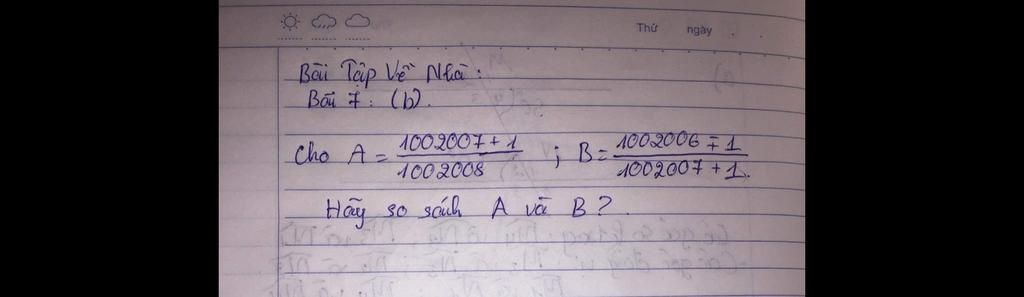 Thứ ngày
Bài Tập Về Nhà:
Bài 7: (b).
Cho A = 1002007 + 1 / 1002008 ; B = 1002006 + 1 / 1002007 + 1.
Hãy so sánh A và B?